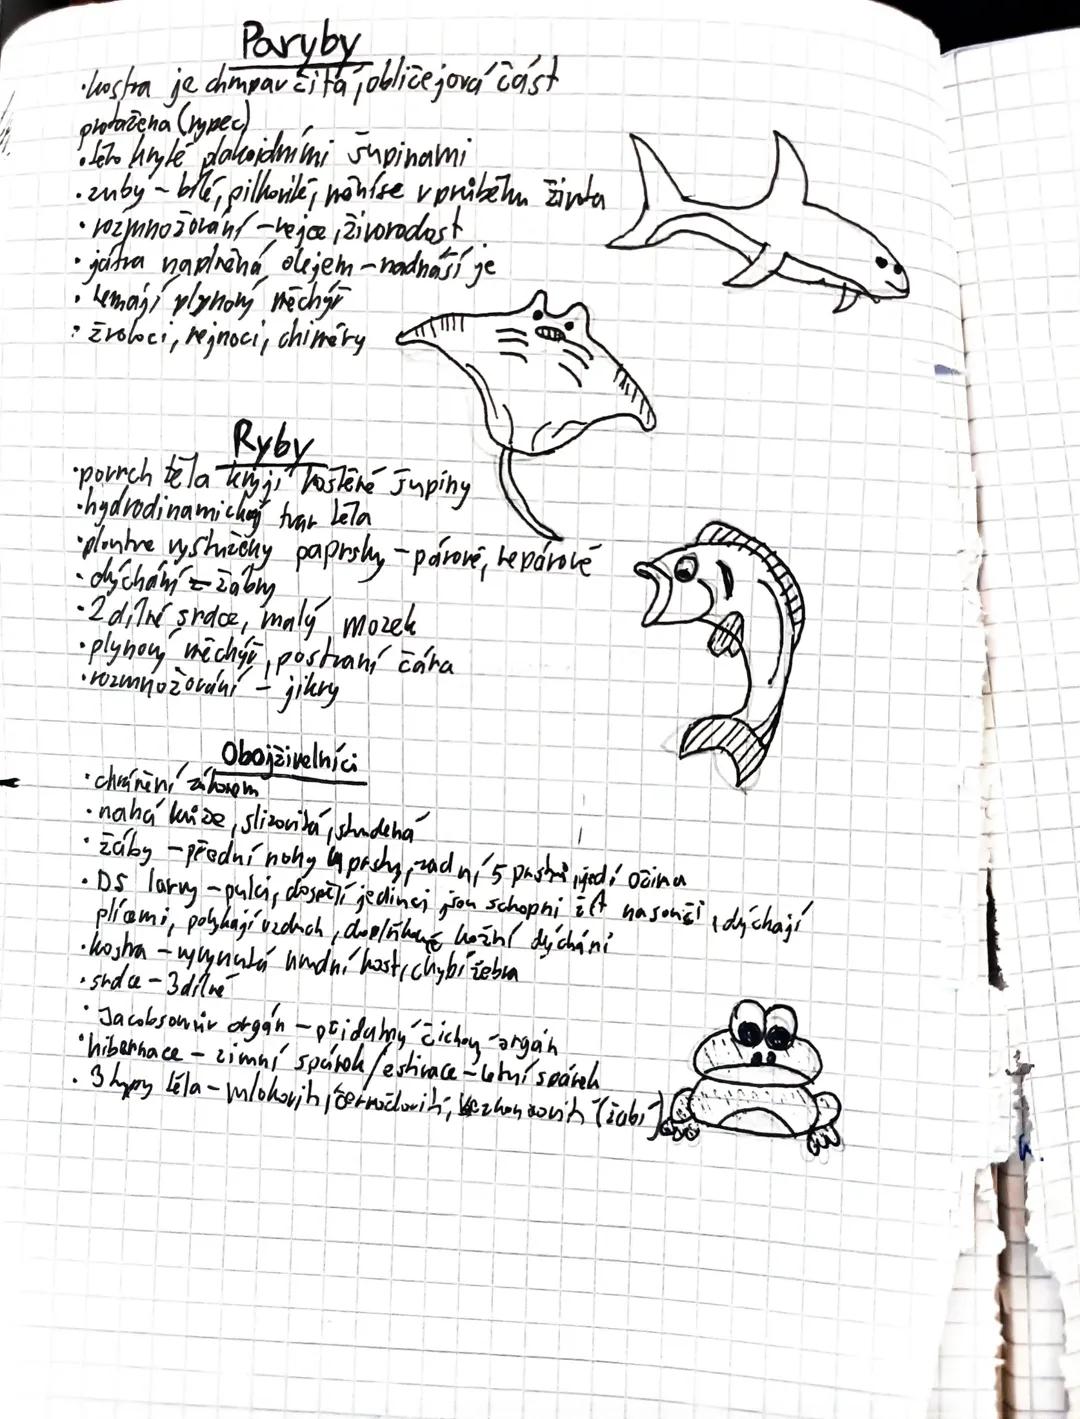 Paryby
•kostra je chrupavčitá, obličejová část
protažena (rypec)
•tělo kryté plakoidními šupinami
•zuby - bílé, pilkovité, v průběhu života
•rozmnožování - vejce, živorodost
•játra naplněná olejem - nadnáší je
•nemají plynový měchýř
•žraloci, rejnoci, chiméry
Ryby
•povrch těla kryjí kostěné šupiny
•hydrodinamický tvar těla
•ploutve vystuženy paprsky - párové, nepárové
•dýchání - žábry
•2 dílné srdce, malý mozek
•plynový měchýř, postraní čára
•rozmnožování - jikry
Obojživelníci
•chránění zákonem
•nahá kůže, slizovitá, studená
•žáby - přední nohy 4 prsty, zadní 5 prstů,
•DS larvy - pulci, dospělí jedinci jsou schopni žít na souši, dýchají
plícemi, polykají vzduch, doplňkové kožní dýchání
•kostra - hrudní kost, chybí žebra
•srdce - 3 dílné
•Jacobsonův orgán - přídatný čichový orgán
•hibernace - zimní spánek / estivace - letní spánek
•3 typy těla - mlokovití, červorovití, (žáby)